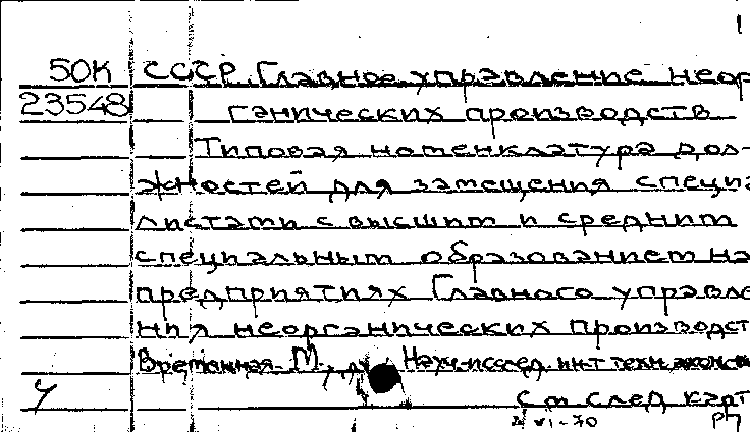 1
50К СССР. Главное управление неор
23548 ганических производств
Типовая номенклатура дол-
жностей для замещения специа
листами с высшим и средним
специальным образованием на
предприятиях Главного управле
ния неорганических производст
Временная. М., Науч.-исслед. ин-т техн. эконом
У см след карт
2 VI-70 РП